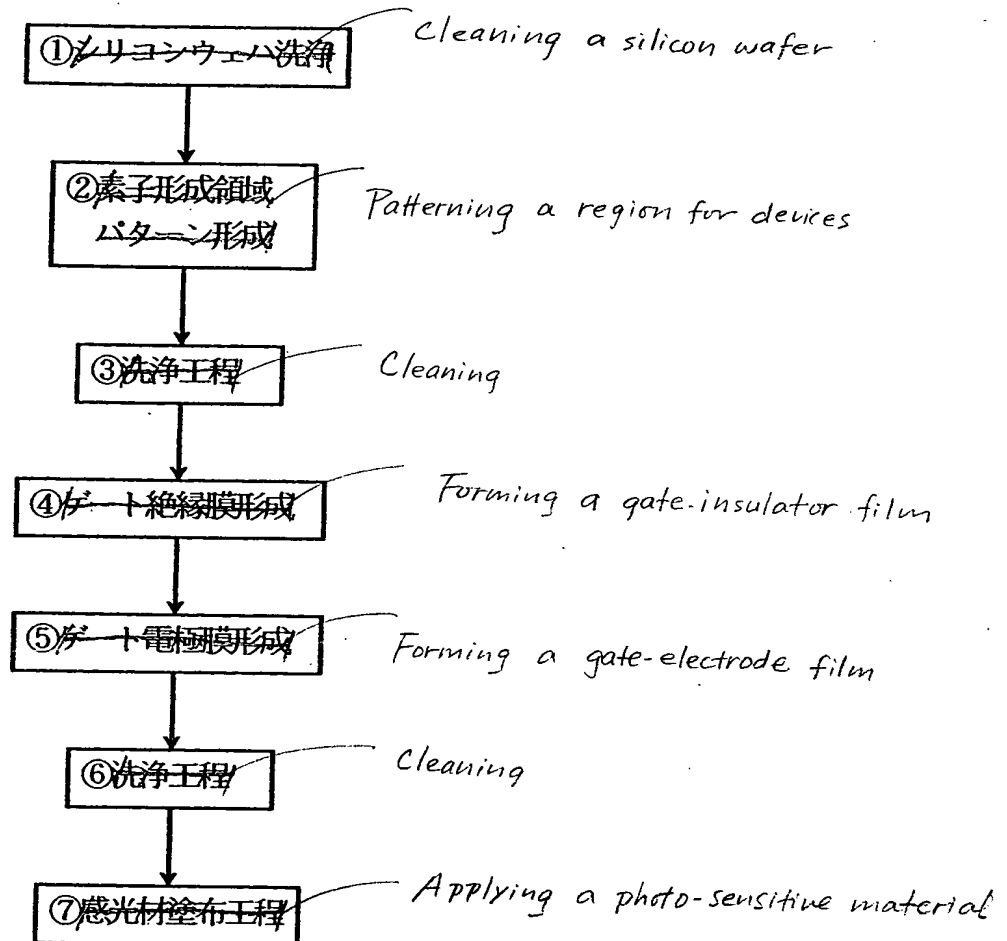 ①シリコンウェハ洗浄
Cleaning a silicon wafer
②素子形成領域
パターン形成
Patterning a region for devices
③洗浄工程
Cleaning
④ゲート絶縁膜形成
Forming a gate-insulator film
⑤ゲート電極膜形成
Forming a gate-electrode film
⑥洗浄工程
Cleaning
⑦感光材塗布工程
Applying a photo-sensitive material